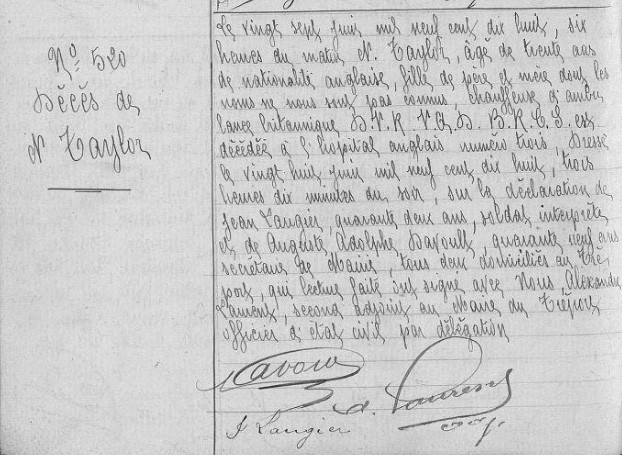 No 520
Décès de
N Taylor
Le vingt sept juin mil neuf cent dix huit, six
heures du matin N. Taylor, âgé de trente ans
de nationalité anglaise, fille de père et mère dont les
noms ne nous sont pas connus, chauffeuse d'ambu
lance britannique V.A.D. B.R.C.S. est
décédée à l'hopital anglais numéro trois, Dressé
le vingt huit juin mil neuf cent dix huit, trois
heures dix minutes du soir, sur la déclaration de
Jean Laugier, quarante deux ans, soldat interprète
et de Auguste Adolphe Davoult, quarante neuf ans
secrétaire de Mairie, tous deux domiciliés au Tré
port, qui lecture faite ont signé avec Nous, Alexandre
Laurent, second adjoint au Maire du Tréport
officier d'état civil par délégation
J Laugier